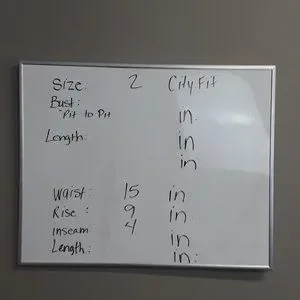 Size: 2 City Fit
Bust:
"Pit to Pit in.
Length: in
in
Waist: 15 in
Rise: 9 in
inseam 4 in
Length: in: